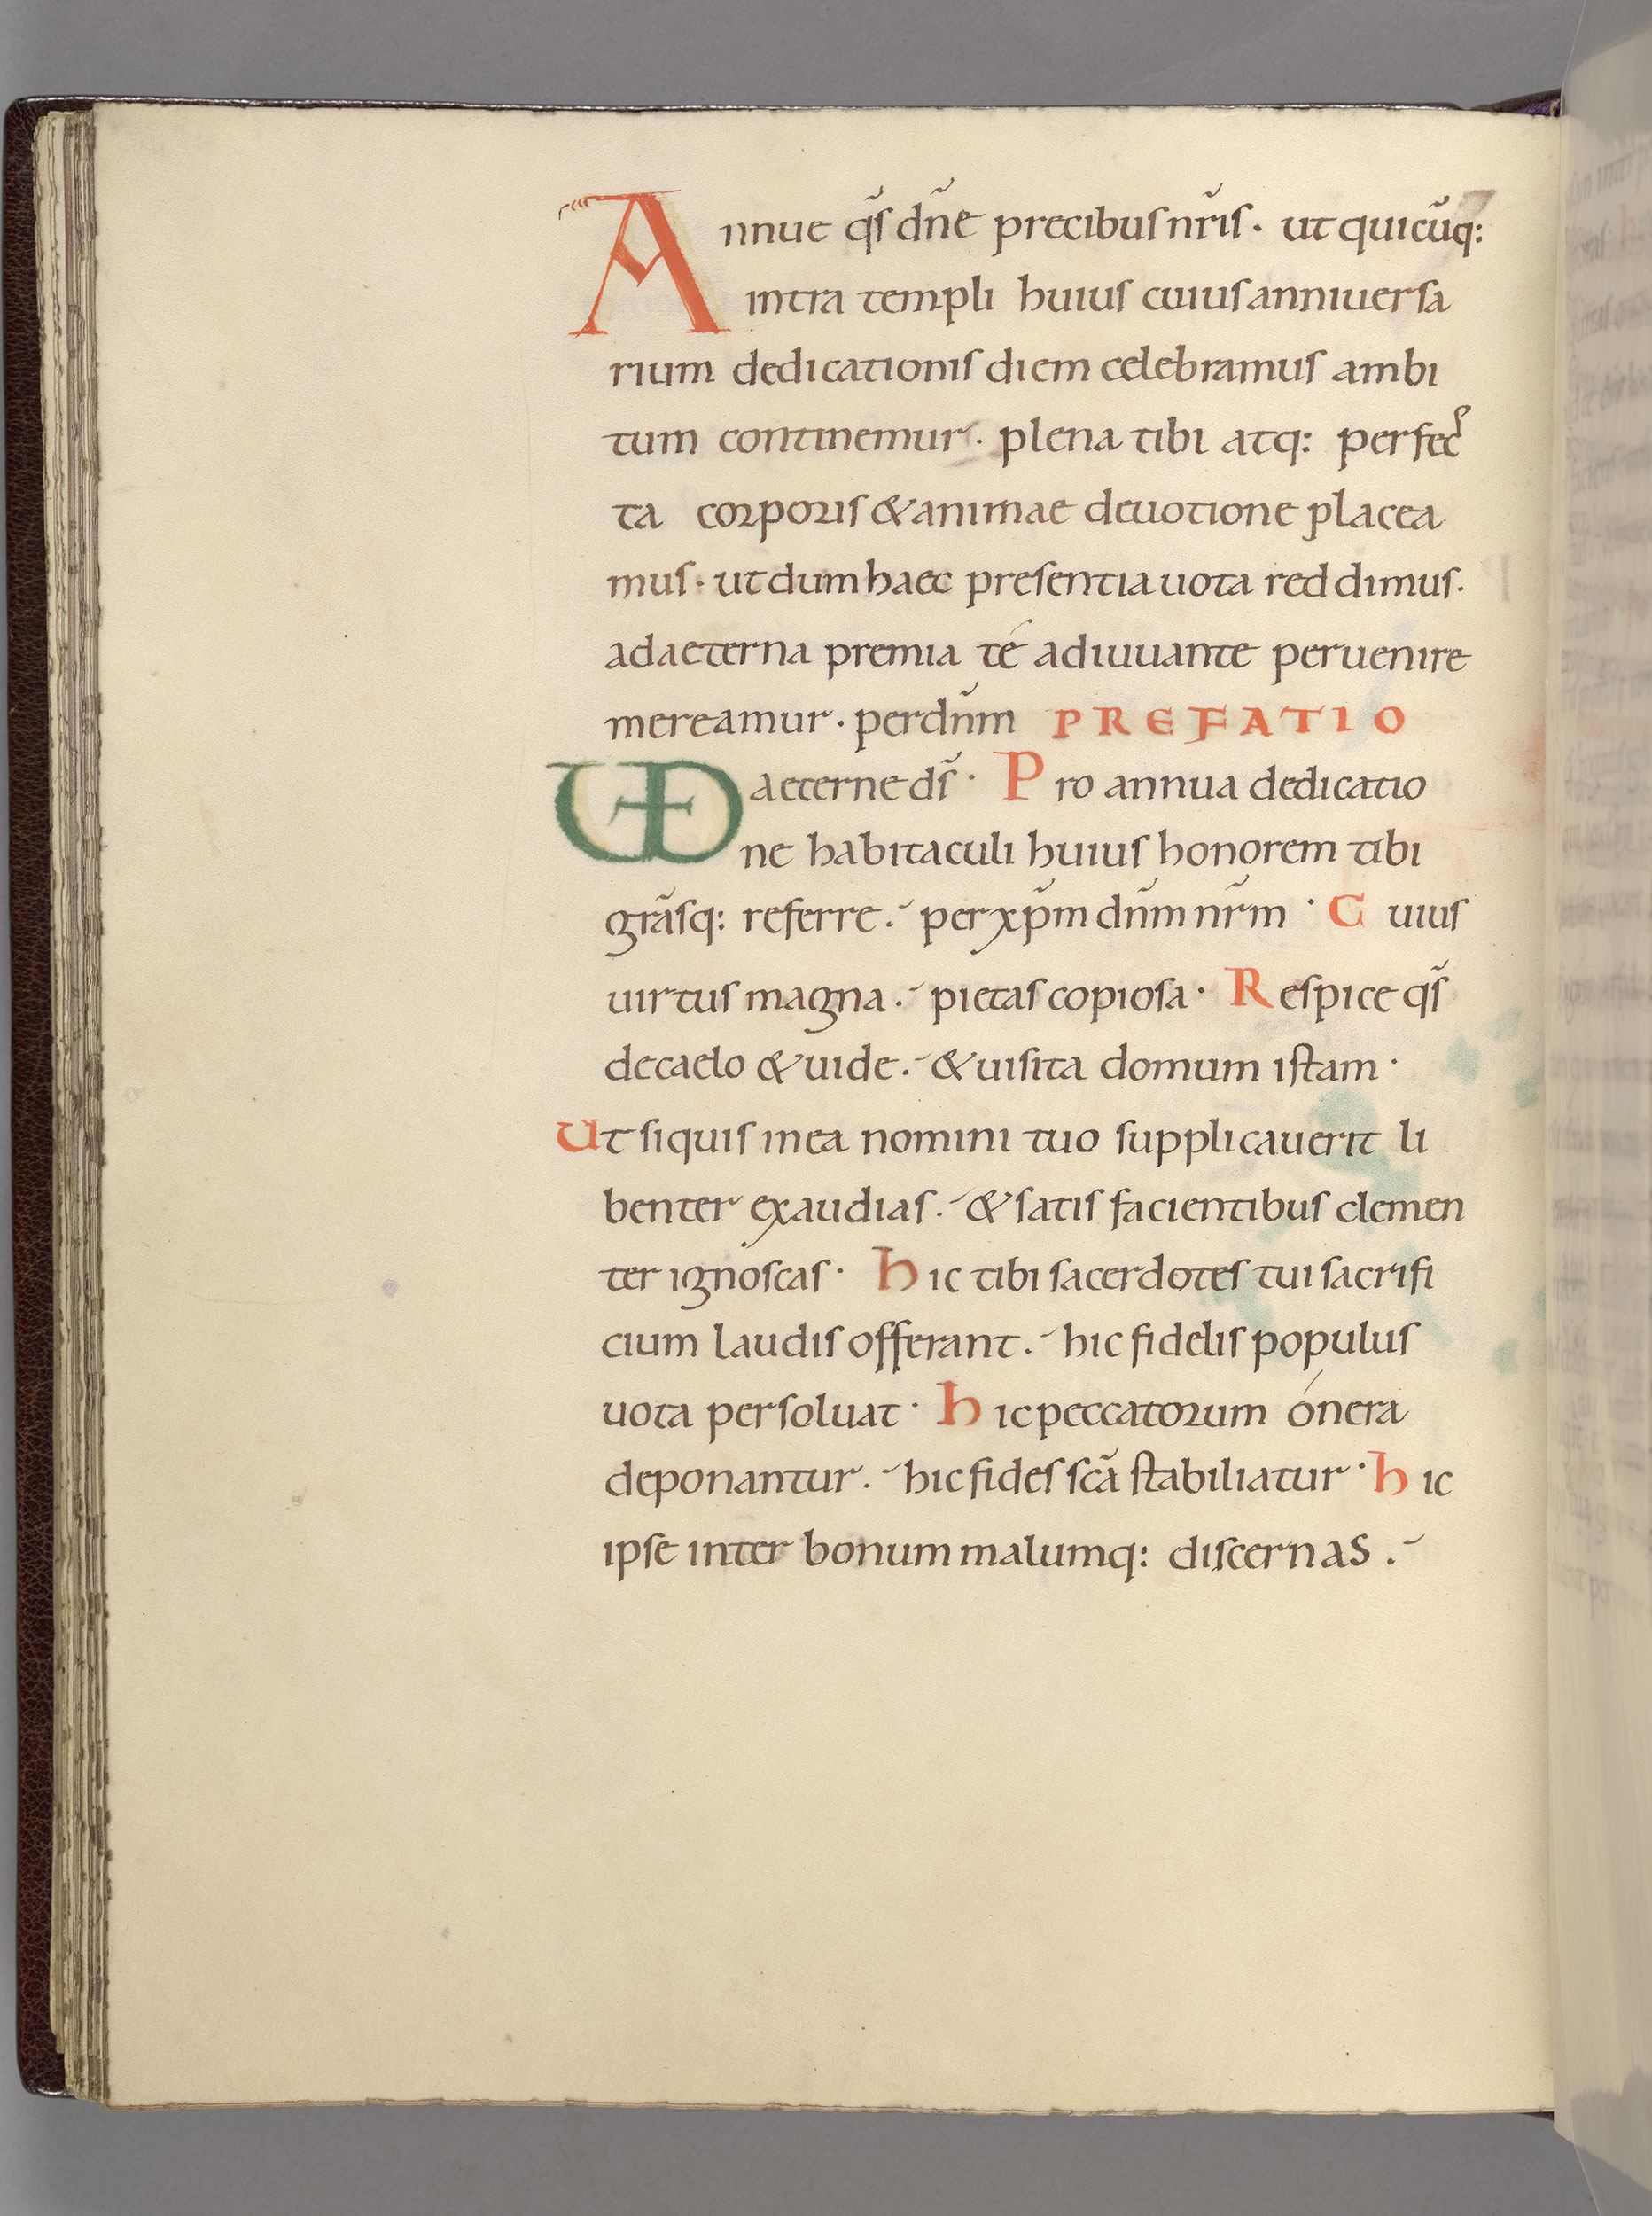 Annue q̃s dñe precibus nr̃is · ut quicũq:
intra templi huius cuius anniuersa
rium dedicationis diem celebramus ambi
tum continemur · plena tibi atq: perfec
ta corporis & animae deuotione placea
mus · ut dum haec presentia uota reddimus ·
ad aeterna premia té adiuuante peruenire
mereamur · per dñm PREFATIO
VD aeterne ds̃ · Pro annua dedicatio
ne habitaculi huius honorem tibi
grãsq: referre . ̃ per xp̃m dñm nr̃m · Cuius
uirtus magna . ̃ pietas copiosa · Respice q̃s
de caelo & uide . ̃ & uisita domum istam ·
Ut siquis in ea nomini tuo supplicauerit li
benter exaudias . ̃ & satis facientibus clemen
ter ignoscas · Hic tibi sacerdotes tui sacrifi
cium laudis offerant . ̃ hic fidelis populus
uota persoluat · Hic peccatorum ónera
deponantur . ̃ hic fides scã stabiliatur · Hic
ipse inter bonum malumq: discernas . ̃